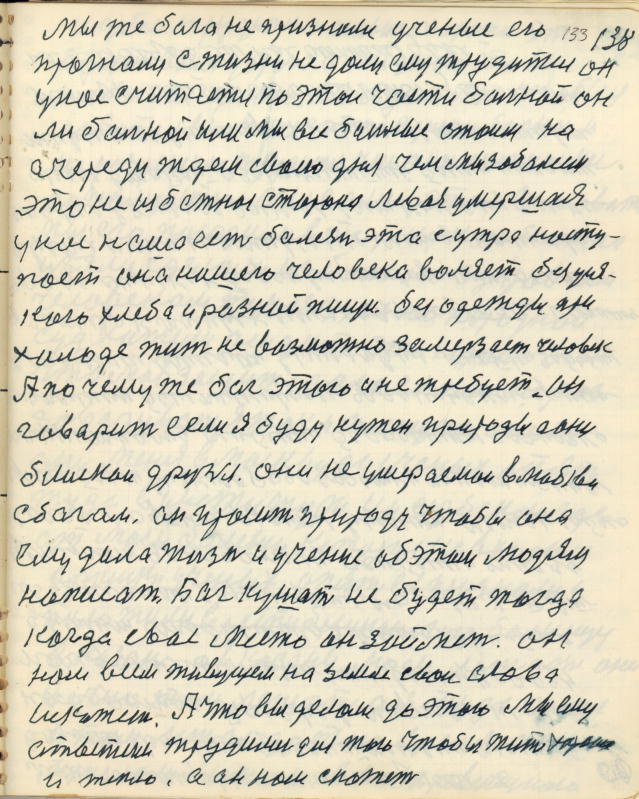 Мы же бога не признали ученые его 133 138
прогнали с жизни не дали ему трудится он
у нас считаети по этой части балной он
ли балной или мы все балные стоим на
очереди ждем своего дня чем мы заболеем
это не избежное сторона левая умершая
у нас нашаест балезн эта с утра насту-
пает она нашего человека воляет без уся-
кого хлеба и разной пищи без одежды при
холоде жит не возможно замерзает человек
А по чему же бог этого и не требует. он
говарит если я буду нужен природы а они
близкои друзя. они не умераемои в любви
с богам. он просит природу чтобы она
ему дала жизн и учение об этом людям
написат. Бог кушат не будет тогда
когда свое место он займет. он
нам всем живущем на земле свои слова
скажет. А что вы делали до этого мы ему
ответим трудилис для того чтобы жить
и тепло. а он нам скажет